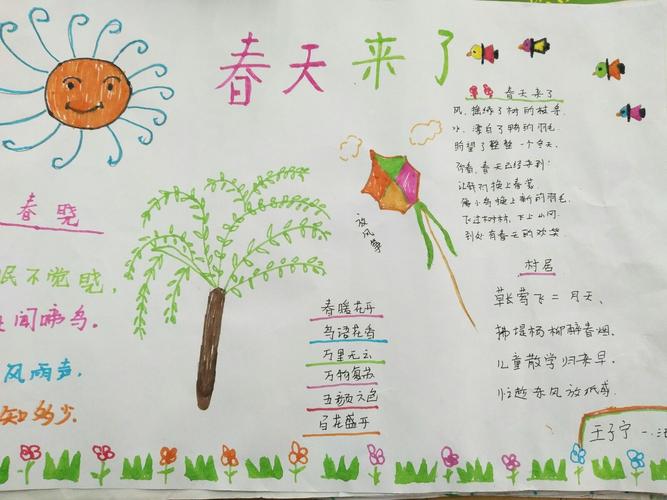 春天来了
春晓
眠不觉晓,
闻啼鸟.
风雨声.
知多少.
放风筝
春暖花开
鸟语花香
万里无云
万物复苏
五颜六色
百花盛开
春天来了
风,摇绿了树的枝条.
水,漂白了鸭的羽毛.
盼望了整整一个冬天.
你看,春天已经来到!
让我们换上春装
像小鸟换上新的羽毛.
飞过树林,飞上山冈.
到处有春天的欢笑.
村居
草长莺飞二月天、
拂堤杨柳醉春烟.
儿童散学归来早、
忙趁东风放纸鸢.
王子宁